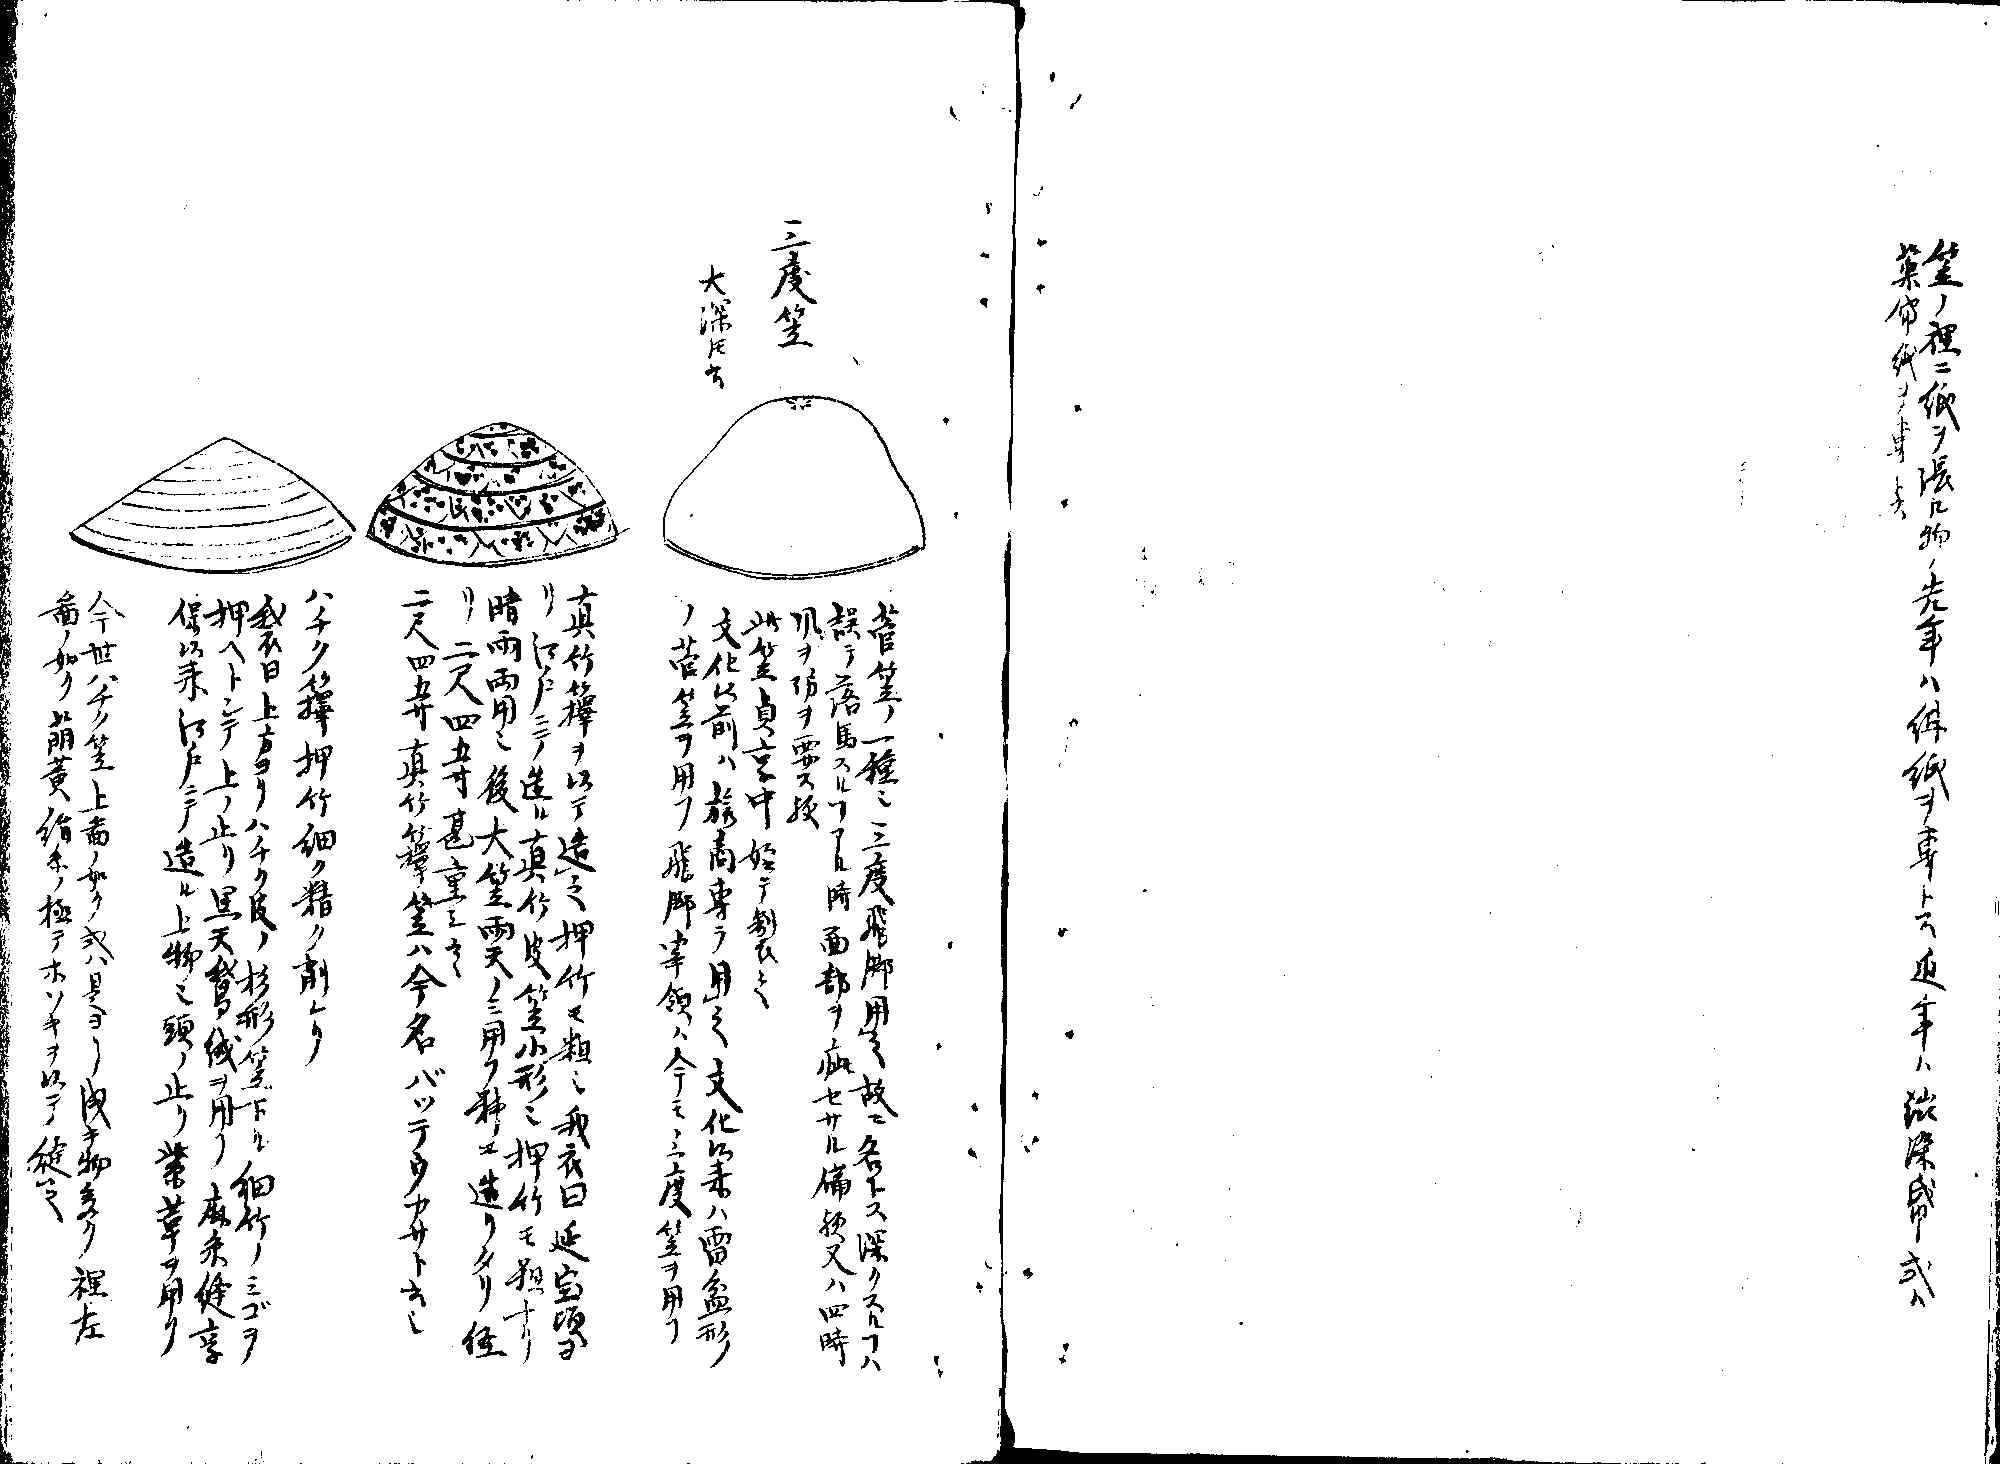 笠ノ裡ニ紙ヲ張ル物ノ先年ハ緋紙ヲ専トス近年ハ渋染紙或ハ
薬袋紙ヲ専トス
三度笠
大深トモ云
菅笠ノ一種也三度飛脚用之故ニ名トス深クスルコハ
誤テ落馬スルコアル時面部ヲ疵セサル備欤又ハ四時
風ヲ防ヲ要ス欤
此笠貞享中始テ製之ト云
文化以前ハ旅商専ラ用之文化以来ハ雷盆形
ノ菅笠ヲ用フ飛脚宰領ハ今モ三度笠ヲ用フ
真竹籜ヲ以テ造之押竹モ粗也我衣曰延宝頃ヨ
リ江戸ニテ造ル真竹皮笠小形也押竹モ粗ナリ
晴雨両用也後大笠雨天ノミ用フ号ヱ造リタリ径
リ二尺四五寸甚重シト云
二尺四五寸真竹籜笠ハ今名バッテウカサト云也
ハチク籜押竹細ク精ク削レリ
我衣曰上方ヨリハチク皮ノ杉形笠下ル細竹ノミゴヲ
押ヘトシテ上ノ止リ黒天鵞絨ヲ用フ麻糸縫享
保以来江戸ニテ造ル上物也頭ノ止リ紫革ヲ用フ
今世ハチク笠上図ノ如ク或ハ是ヨリ浅キ物多ク裡左
図ノ如ク萌黄絹糸ノ極テホソキヲ以テ縫之